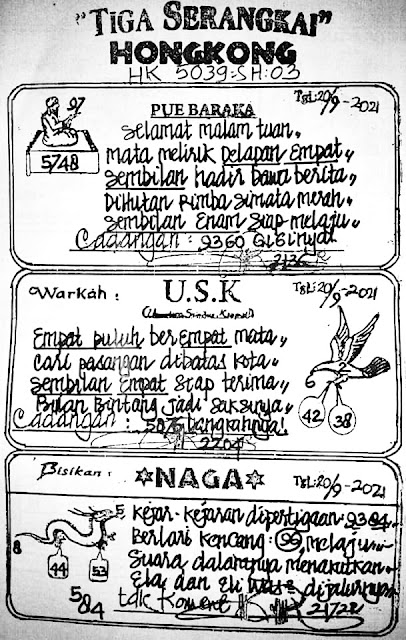 "TIGA SERANGKAI"
HONGKONG
HK 5039-SH:03
Tgl:20/9-2021
97
5748
PUE BARAKA
Selamat malam tuan,,
mata melirik Delapan Empat,,
Sembilan hadir bawa berita,
Dihutan Rimba Simata merah.
Sembilan Enam Siap melaju,,
Cadangan : 9360
2136
Warkah :
U.S.K
Tgl:20/9-2021
Empat puluh berEmpat mata,,
Cari pasangan dibatas kota,,
Sembilan Empat Siap terima,,
Bulan Bintang jadi Saksinya,,
Cadangan : 5076 tangkahnya!
2204
6 2
42 38
Bisikan :
NAGA
Tgl:20/9-2021
5 Kejar-kejaran dipertigaan. 9384,
Berlari kencang : 99, melaju
Suara dalamnya menakutkan
Ela, dan Eli dijalurnya
tdk Koment
21728
8
44 52
584